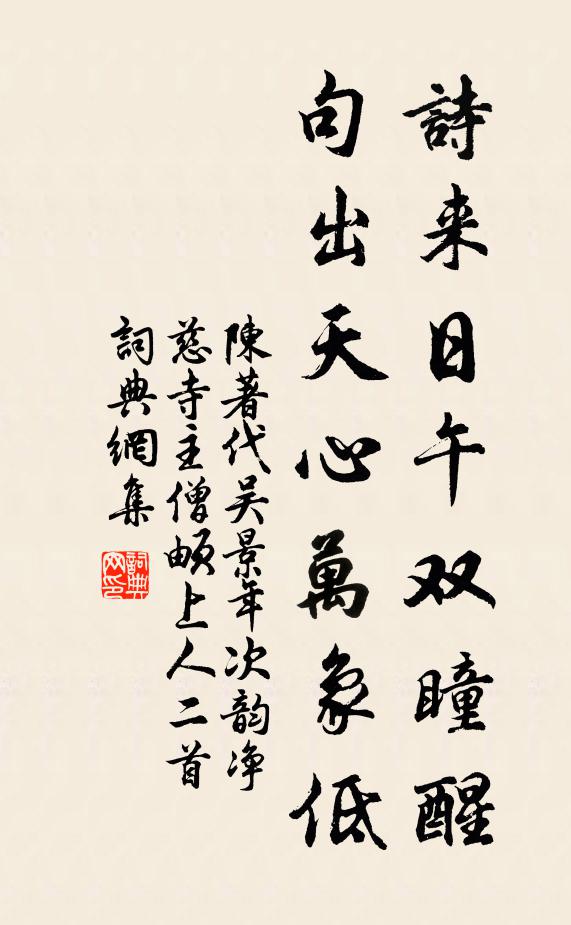 詩来日午双瞳醒
句出天心萬象低
陳著代吴景年次韵净
慈寺主僧頔上人二首
詞典網集
詞典
网印